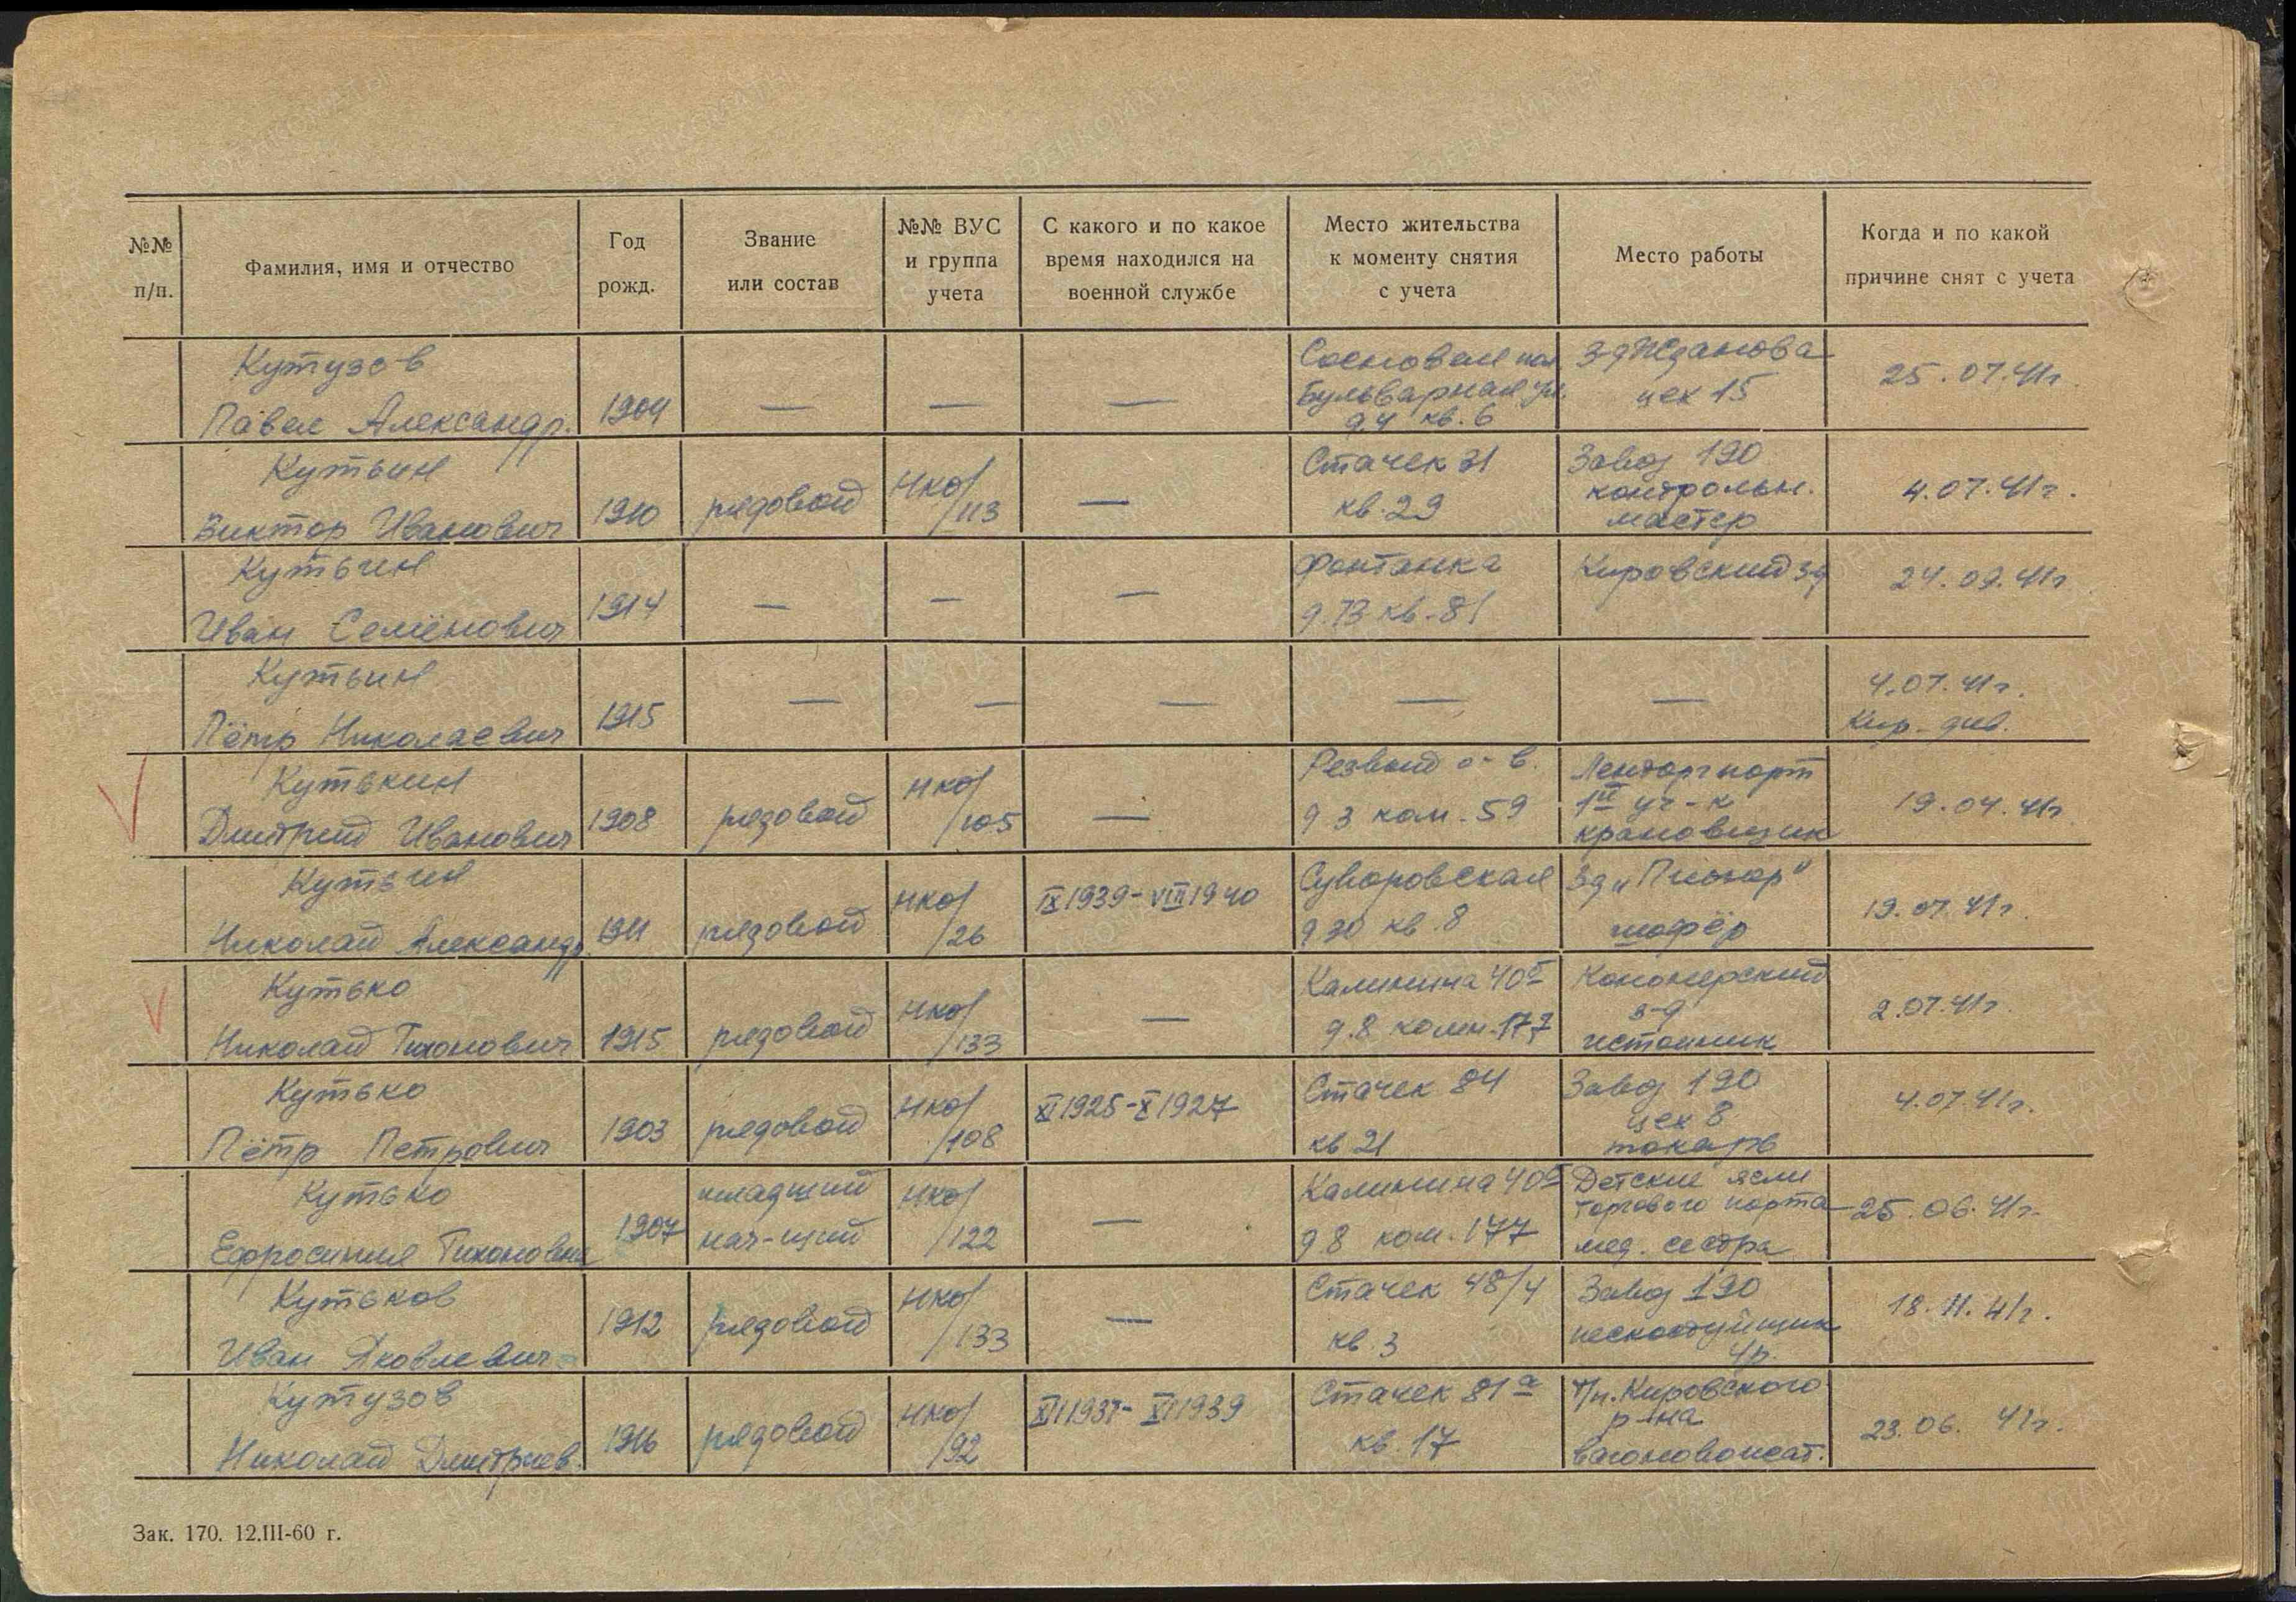 №№ п/п.
Фамилия, имя и отчество
Год рожд.
Звание или состав
№№ ВУС и группа учета
С какого и по какое время находился на военной службе
Место жительства к моменту снятия с учета
Место работы
Когда и по какой причине снят с учета
Кутузов
Павел Александр.
1904
—
—
—
Сосновая пол
Бульварная ул.
д.4 кв.6
З-д Жданова
цех 15
25.07.41г.
Кутьин
Виктор Иванович
1910
рядовой
НКО/113
—
Стачек 31
кв.29
Завод 190
контрольн.
мастер
4.07.41г.
Кутьин
Иван Семёнович
1914
—
—
—
Фонтанка
д.73 кв.81
Кировский зд
24.09.41г
Кутьин
Пётр Николаевич
1915
—
—
—
—
—
4.07.41г.
Кир. див.
Кутькин
Дмитрий Иванович
1908
рядовой
НКО/105
—
Резвый о-в.
д 3 ком.59
Ленторгпорт
1й уч-к
крановщик
19.04.41г.
Кутьин
Николай Александр.
1911
рядовой
НКО/26
IX 1939-VIII 1940
Суворовская
д 30 кв.8
Зд „Пионер"
шофёр
19.07.41г.
Кутько
Николай Тихонович
1915
рядовой
НКО/133
—
Калинина 40б
д.8 комн.177
Канонерский
з-д
истопник
2.07.41г.
Кутько
Пётр Петрович
1903
рядовой
НКО/108
XI 1925-X 1927
Стачек 84
кв 21
Завод 190
цех 8
токарь
4.07.41г.
Кутько
Ефросиния Тихоновна
1907
младший
нач-щий
НКО/122
—
Калинина 40б
д 8 ком.177
Детские ясли
Торгового порта
мед. сестра
25.06.41г.
Кутьков
Иван Яковлевич
1912
рядовой
НКО/133
—
Стачек 48/4
кв.3
Завод 190
пескоструйщик
4р.
18.11.41г.
Кутузов
Николай Дмитриев.
1916
рядовой
НКО/92
XI 1937- XI 1939
Стачек 81а
кв.17
Т/п. Кировского
р-на
вагоновожат.
23.06. 41г.
Зак. 170. 12.III-60 г.